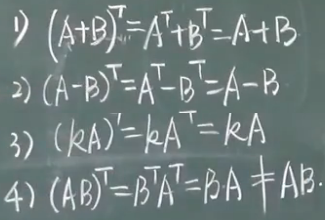 1) (A+B)ᵀ=Aᵀ+Bᵀ=A+B
2) (A-B)ᵀ=Aᵀ-Bᵀ=A-B
3) (kA)ᵀ=kAᵀ=kA
4) (AB)ᵀ=BᵀAᵀ=B·A≠AB.